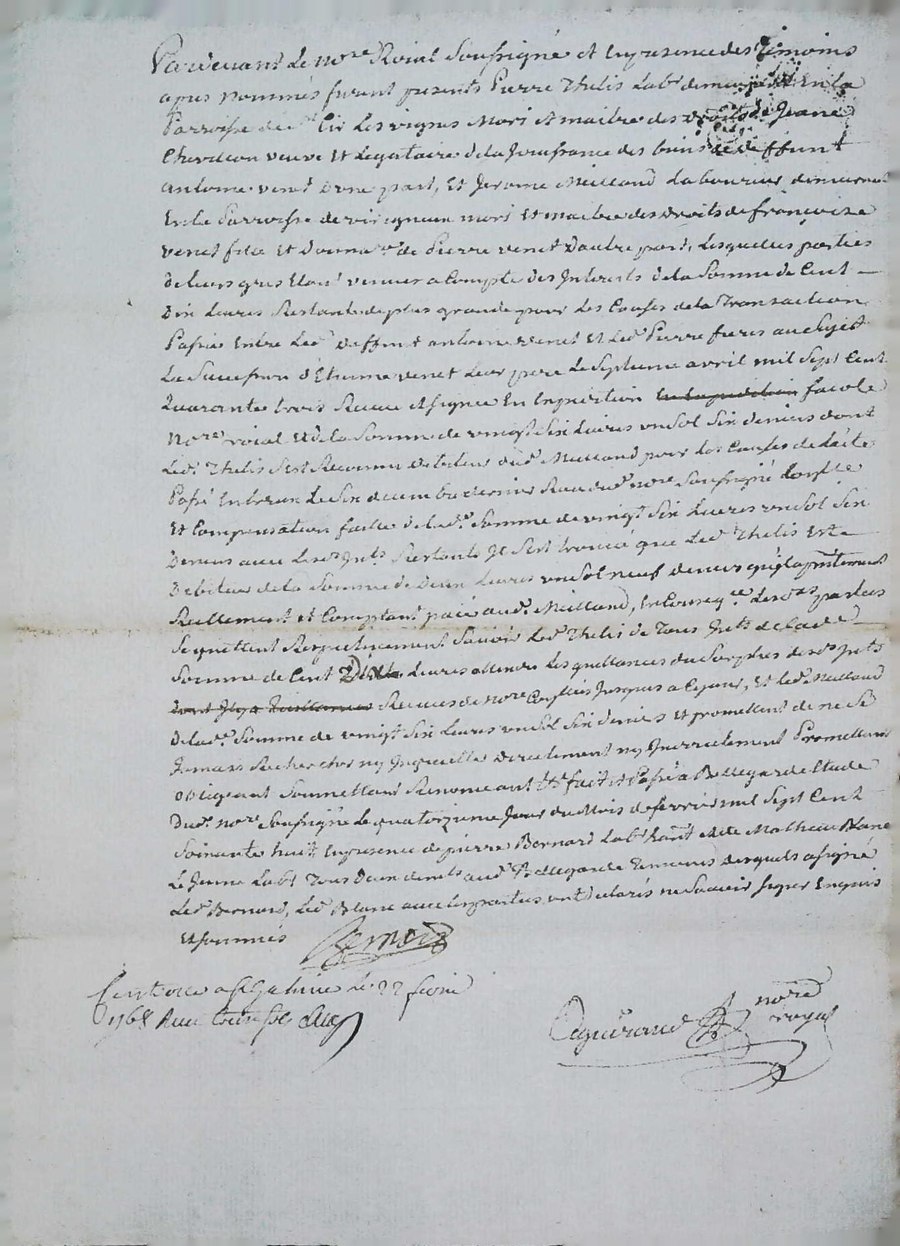 Pardevant Le no.re Roial Soussigné et En presence des Temoins
apres nommés furent presents Pierre Thelis Lab.r demeurant En la
Parroisse de S.t Cir Les vignes Mari et maitre des droits de Jeane
Chevillion veuve et Legataire de la Jouissance des biens de deffunt
antoine venet d'une part, Et Jerome Meilland Laboureur demeurant
En la Parroisse de virigneux mari et maitre des droits de françoise
venet fille et donna.re de Pierre venet d'autre part, Lesquelles parties
de leurs gres Etant venues a Compte des Interests de la Somme de Cent
Dix Livres Restante de plus grande pour les Causes de la Transaction
Passée Entre Led. deffunt antoine venet et Led. Pierre freres au Sujet
La Succession d'Etienne venet Leur pere Le Septieme avril mil Sept Cent
Quarante trois Recue et signée En Expedition
No.re roial et de la Somme de vingt Six Livres un Sol Six deniers dont
Led. Thelis s'est Reconnu debiteur aud. Meilland pour les Causes de l'acte
Passé Entreux Le Six decembre dernier Recu dud. no.re Soussigné
Et Compensation faitte de lad. Somme de vingt Six Livres un Sol Six
Deniers avec Les d. Int.s Restants Il s'est trouvé que Led. Thelis Est
Debiteur de la Somme de Deux Livres un Sol neuf deniers qu'il a pntement
Reellement et Comptant paié aud. Meilland, En Conseq.ce Lesd. parties
Se quittent Respectivement Savoir Led. Thelis de Tous Int.s de lade
Somme de Cent Dix Livres les quittances du Surplus desd. Int.s
Recues de no.re Jusques a Ce jour, Et led. Meilland
De lad. Somme de vingt Six Livres un Sol Six deniers et promettent de ne Se
Jamais Rechercher ny Inquietter directement ny Indirectement Promettant
obligeant Soumettant Renonceant &.a fait et Passé a Bellegarde Etude
Dud. no.re Soussigné Le quatorzieme Jour du Mois de fevrier mil Sept Cent
Soixante huit En presence de pierre Bernard Lab.r et de Mathieu Blanc
Le Jeune Lab.r Tous Deux dem.ts aud. Bellegarde Temoins desquels a signé
Led. Bernard, Led. Blanc avec Les parties ont declarés ne Scavoir signer Enquis
Et sommés
Bernard
Controlle a S.t Galmier Le 22 fevrier
1768 Recu treize sols
nore
royal